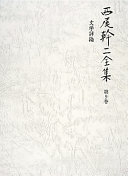 西尾幹二全集
第九巻
文学評論